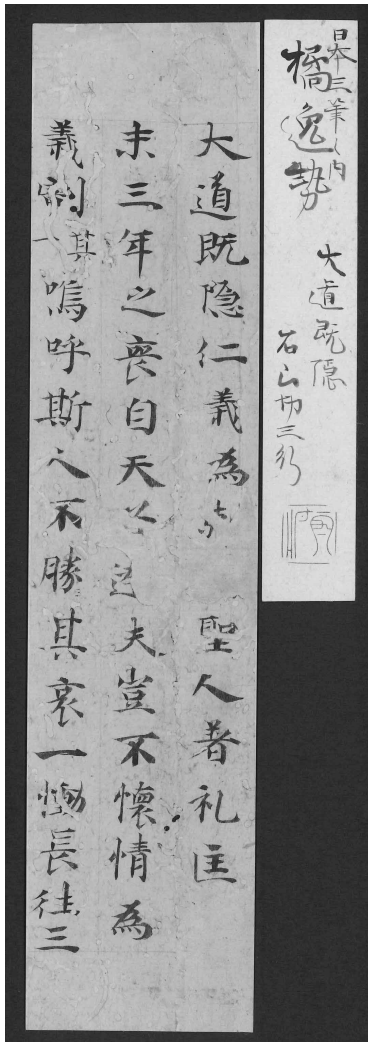 日本三筆之内
橘逸勢
大道既隠
石山切三行
大道既隐仁義為 聖人著礼匡
末三年之喪自天 夫豈不懷情為
義割 其嗚呼斯之不勝其哀一慟長往三